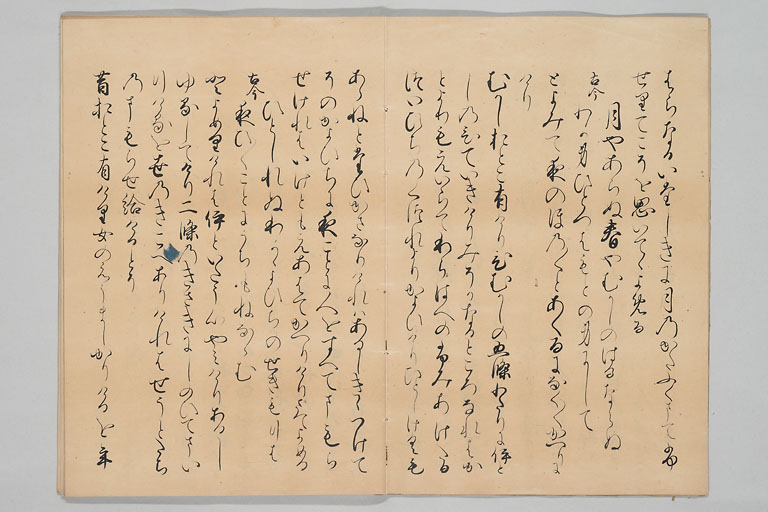 はらなるいたしきに月のかたふくまてふ
せりてこそを思いてゝよめる
月やあらぬ春やむかしのはるならぬ
古今
わか身ひとつはもとの身にして
とよみて夜のほの〳〵とあくるになく〳〵かへりに
けり
むかしおとこ有けりひむかしの五條わたりに伊と
しのひていきけりみそかなるところなれはか
とよりもえいらてわらはへのふみあけたる
ついひちのくつれよりかよひけりひとしけくも
あらねとたひかさなりけれはあるしきゝつけて
そのかよひちに夜ことに人をすへてまもら
せけれはいけともえあはてかへりけりさてよめる
ひとしれぬわかかよひちのせきもりは
古今
夜ひ〳〵ことにうちもねなゝむ
とよめりけれは伊といたう心やみけりあるし
ゆるしてけり二條のきさきにしのひてまい
りけるを世のきこへありけれはせうとたち
のまもらせ給けるとそ
昔おとこ有けり女のえうましかりけるを年